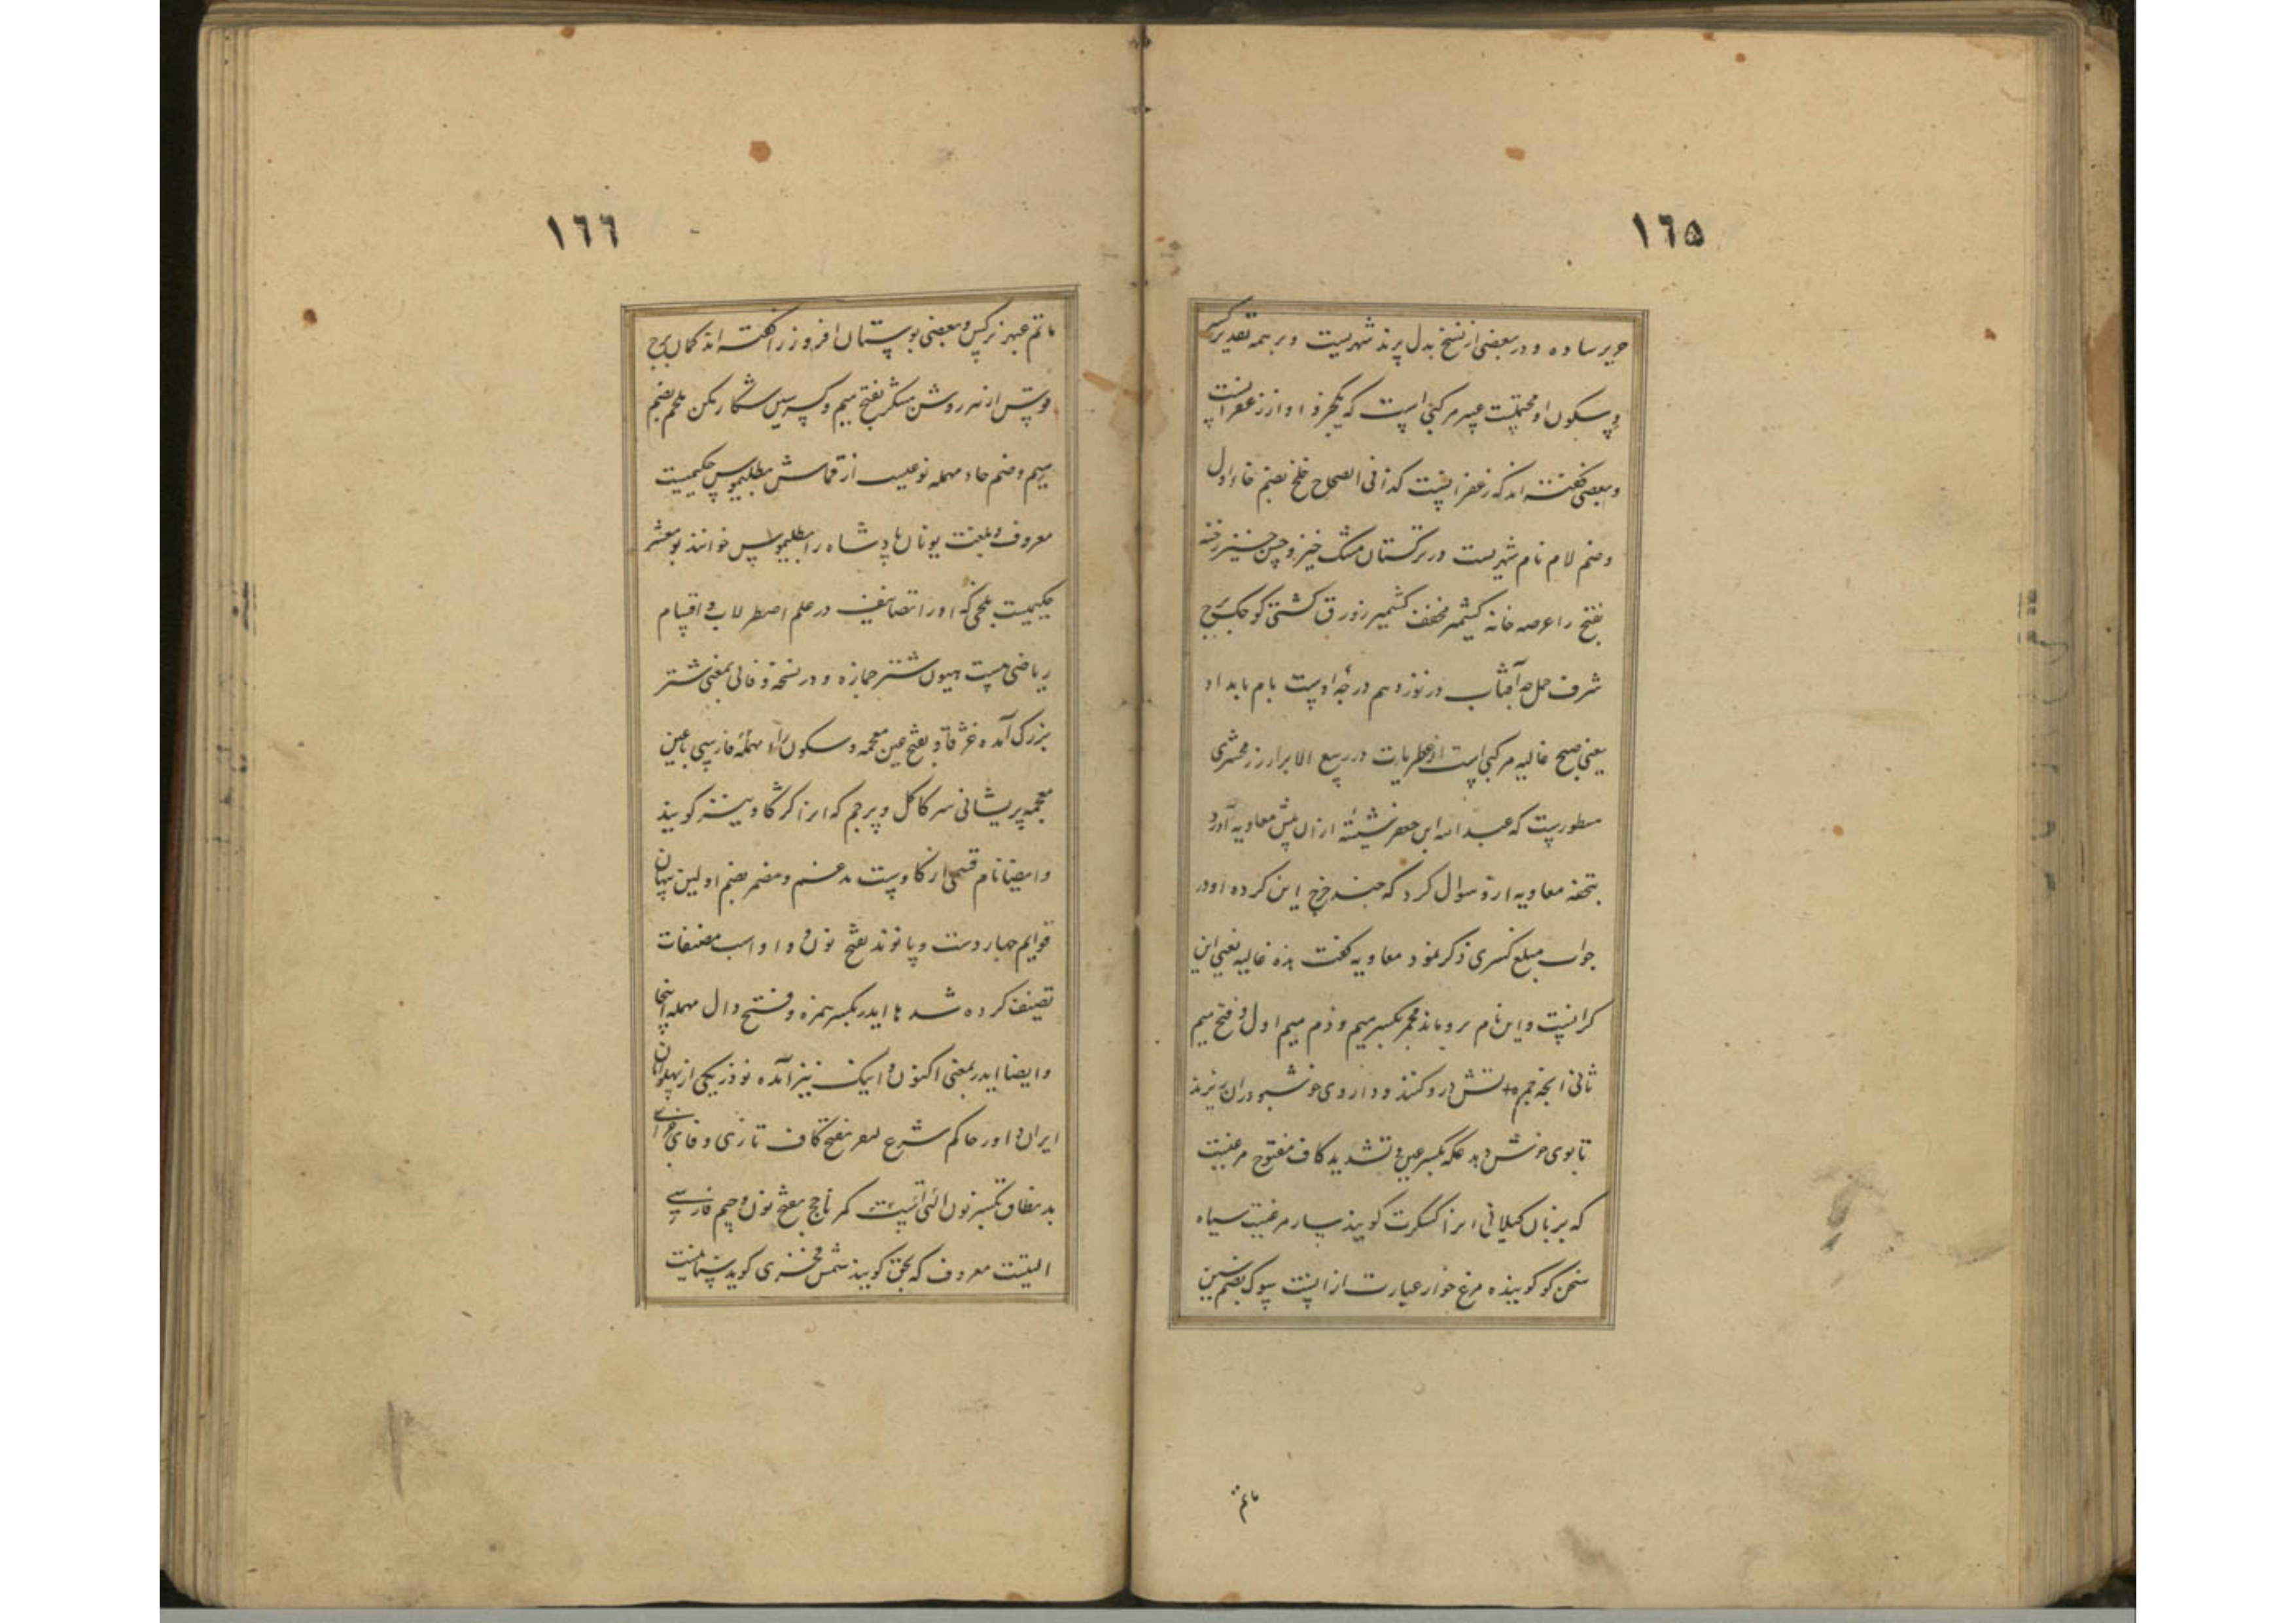 ١٦٥
حریر ساده و در بعضی از نسخ بدل پرند شهریست و بر همه تقدیر کسر
و سکون او محتملست عبیر مرکبی است که یکجزو او از زعفرانست
و بعضی گفته اند که زعفرانیست کذا فی الصحاح خلخ بضم خاء اول
و ضم لام نام شهریست در ترکستان مشک خیز و حسن خیز رخنه
بفتح را عرصه خانه کشمر مخفف کشمیر زورق کشتی کوچک برج
شرف حمل چه آفتاب در نوزدهم درجه اوست بام بامداد
یعنی صبح غالیه مرکبی است از عطریات در ربیع الابرار زمخشری
مسطورست که عبد الله ابن جعفر شیشه از ان پیش معاویه آورد
بتحفه معاویه ازو سوال کرد که چند خرج این کرده او در
جواب مبلغ کثیری ذکر نمود معاویه گفت هذه غالیه یعنی این
کرانیست و این نام برو ماند مجمر بکسر میم و ذم میم اول و فتح میم
ثانی انچه جمره آتش درو کنند و داروی خوشبو دران ریزند
تا بوی خوش دهد عکه بکسر عین و تشدید کاف مفتوح مرغیست
که بزبان گیلانی انرا کسکرت کویند سار مرغیست سیاه
سخن کو کوینده مرغ خوار عبارت ازانست سوک بضم سین
ماتم
١٦٦
ماتم عبهر نرگس و بعضی بوستان افروز را گفته اند کمان برج
قوس ازهر روشن مشکر بفتح میم و کسر سین شکار مکن ملحم بضم
میم و ضم حاء مهمله نوعیست از قماش بطلیموس حکیمیست
معروف و بلغت یونان پادشاه را بطلیموس خوانند بو معشر
حکیمیست بلخی که او را تصانیف در علم اصطرلاب و اقسام
ریاضی هست هیون شتر جمازه و در نسخه وفائی بمعنی شتر
بزرک آمده غژقاو بفتح غین معجمه و سکون زاء مهمله فارسی یا غین
معجمه پریشانی سر کاکل و پرچم که انرا کرکاو نیز کویند
و ایضا نام قسمی از کاوست مدغم و مضمر بضم اولین پنهان
قوایم چهار دست و پا نوند بفتح نون و واو اسب مصنفات
تصنیف کرده شدها ایدر بکسر همزه و فتح دال مهمله اینجا
و ایضا ایدر بمعنی اکنون و اینک نیز آمده نوذر یکی از پهلوانان
ایران داور حاکم شرع کیفر بفتح کاف تازی و فا جزای
بد نطاق بکسر نون التیست کمر ناجخ بفتح نون و جیم فارسی
التیست معروف که بحق کویند شمس فخری کوید سنانیست